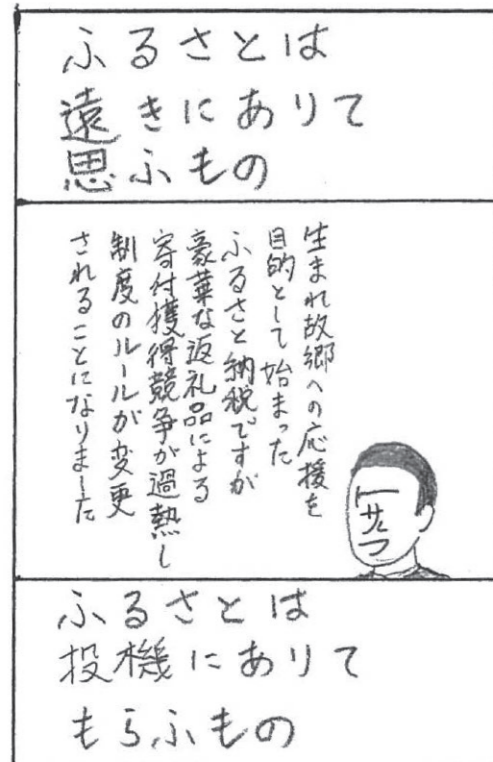 ふるさとは
遠きにありて
思ふもの
生まれ故郷への応援を
目的として始まった
ふるさと納税ですが
豪華な返礼品による
寄付獲得競争が過熱し
制度のルールが変更
されることになりました
ふるさとは
投機にありて
もらふもの